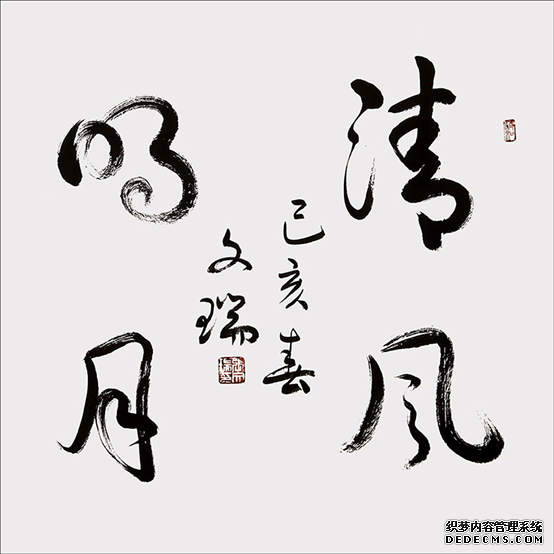 清风
明月
己亥春
文瑞
织梦内容管理系统
DEDECMS.COM